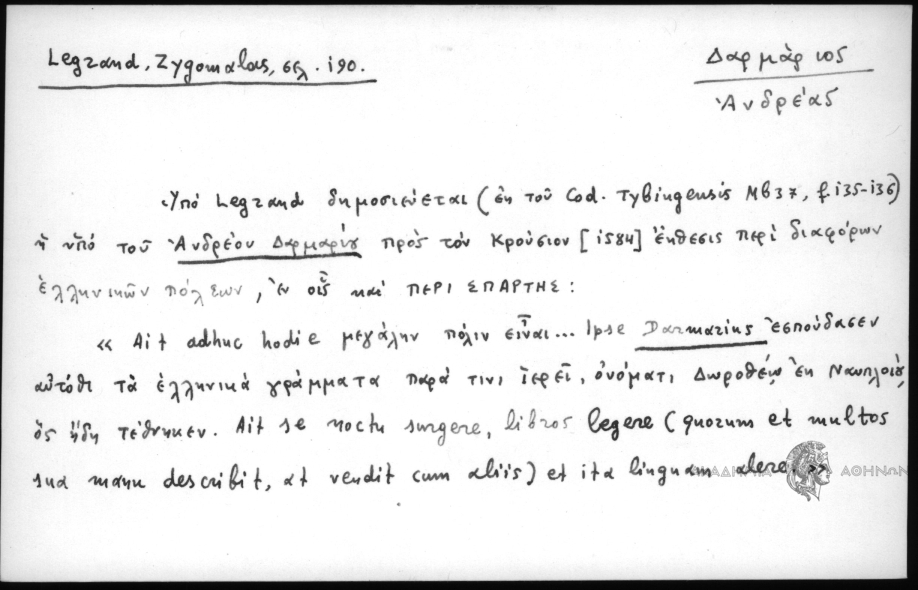 Legrand, Zygomalas, σελ. 190.
Δαρμάριος
Ἀνδρέας
Ὑπό Legrand δημοσιεύεται (ἐκ τοῦ Cod. Tybingensis Mb37, f. 135-136)
ἡ ὑπό τοῦ Ἀνδρέου Δαρμαρίου πρὸς τόν Κρούσιον [1584] ἔκθεσις περί διαφόρων
ἑλληνικῶν πόλεων, ἐν οἷς καί ΠΕΡΙ ΣΠΑΡΤΗΣ:
« Ait adhuc hodie μεγάλην πόλιν εἶναι... Ipse Darmarius ἐσπούδασεν
αὐτόθι τά ἑλληνικά γράμματα παρά τινι ἱερεῖ, ὀνόματι Δωροθέῳ ἐκ Ναυπλοίου,
ὅς ἤδη τέθνηκεν. Ait se noctu surgere, libros legere (quorum et multos
sua manu describit, at vendit cum aliis) et ita linguam alere. »
ΑΘΗΝΩΝ